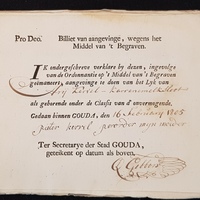 Pro Deo. Billiet van aangevinge, wegens het
Middel van 't Begraven.
IK ondergeschreve verklare by dezen, ingevolge
van de Ordonnantie op 't Middel van 't Begraven
geëmaneert, aangevinge te doen van het Lyk van
Ary
als gehorende onder de Classis van d'onvermogende.
Gedaan binnen GOUDA, den 16 February
pieter
Ter Secretarye der Stad GOUDA,
geteikent op datum als boven.